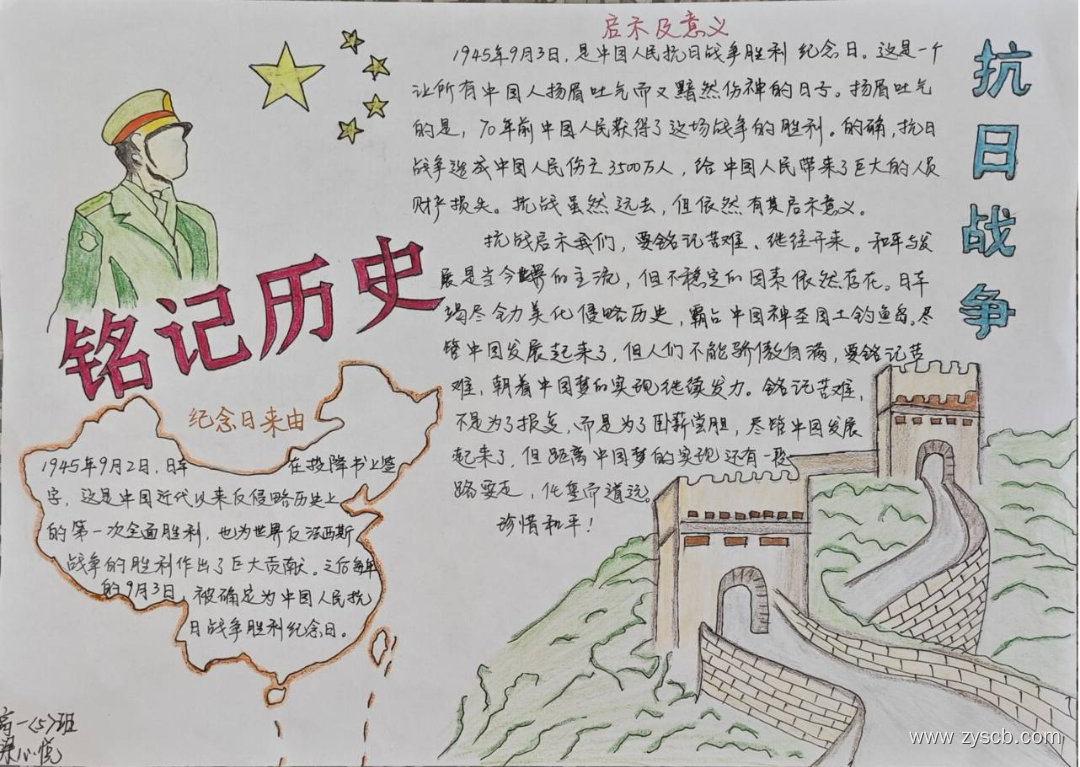 启示及意义
1945年9月3日,是中国人民抗日战争胜利纪念日。这是一个
让所有中国人扬眉吐气而又黯然伤神的日子。扬眉吐气
的是,70年前中国人民获得了这场战争的胜利。的确,抗日
战争造成中国人民伤亡3500万人,给中国人民带来了巨大的人员
财产损失。抗战虽然远去,但依然有其启示意义。
抗战启示我们,要铭记苦难、继往开来。和平与发
展是当今世界的主流,但不稳定的因素依然存在。日本
竭尽全力美化侵略历史,霸占中国神圣国土钓鱼岛。尽
管中国发展起来了,但人们不能骄傲自满,要铭记苦
难,朝着中国梦的实现继续发力。铭记苦难,
不是为了报复,而是为了卧薪尝胆,尽管中国发展
起来了,但距离中国梦的实现还有一段
路要走,任重而道远。
珍惜和平!
抗日战争
铭记历史
纪念日来由
1945年9月2日,日本 在投降书上签
字,这是中国近代以来反侵略历史上
的第一次全面胜利,也为世界反法西斯
战争的胜利作出了巨大贡献。之后每年
的9月3日,被确定为中国人民抗
日战争胜利纪念日。
高一<5>班
www.zyscb.com